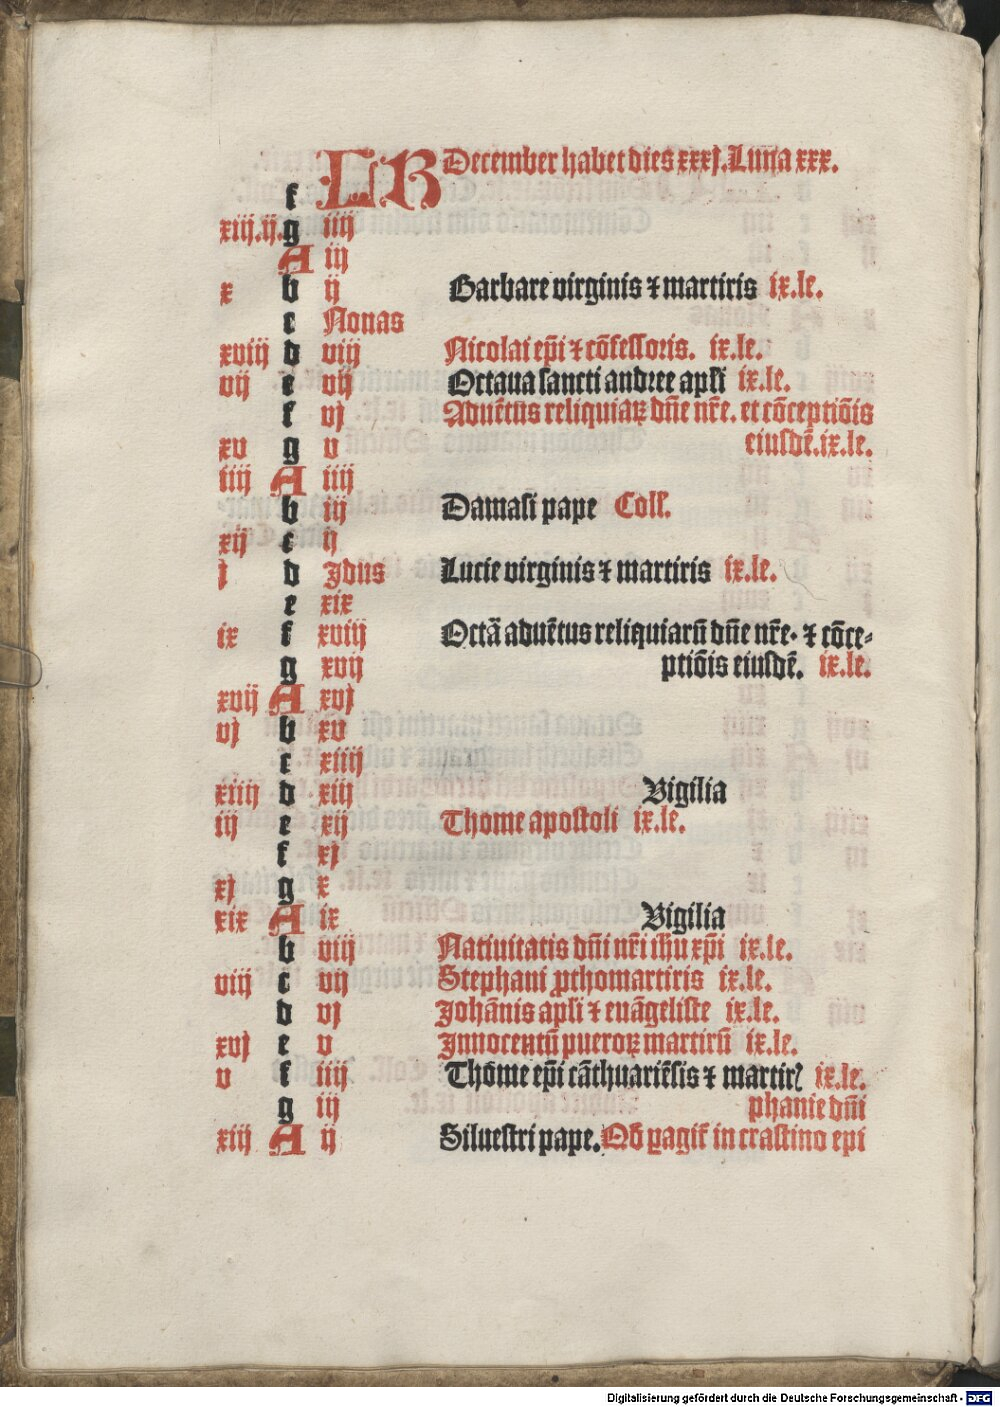 KL December habet dies xxxj. Luna xxx.
f
xiij.ij. g iiij
A iij
x b ij Barbare virginis ⁊ martiris ix.le.
c Nonas
xviij d viij Nicolai ep̄i ⁊ cōfessoris. ix.le.
vij e vij Octaua sancti andree apl̄i ix.le.
f vj Aduētus reliquiaꝝ dn̄e nr̄e. et cōceptiōis
xv g v eiusdē.ix.le.
iiij A iiij
b iij Damasi pape Coll.
xij c ij
j d Jdus Lucie virginis ⁊ martiris ix.le.
e xix
ix f xviij Octā aduētus reliquiarū dn̄e nr̄e. ⁊ cōce-
g xvij ptiōis eiusdē. ix.le.
xvij A xvj
vj b xv
c xiiij
xiiij d xiij Vigilia
iij e xij Thome apostoli ix.le.
f xj
xj g x
xix A ix Vigilia
b viij Natiuitatis dn̄i nr̄i ihu xp̄i ix.le.
viij c vij Stephani ꝓthomartiris ix.le.
d vj Johānis apl̄i ⁊ euāgeliste ix.le.
xvj e v Jnnocentū pueroꝝ martirū ix.le.
v f iiij Thōme ep̄i cāthuariēsis ⁊ martirꝭ ix.le.
g iij phanie dn̄i
xiij A ij Siluestri pape. in crastino epi
Digitalisierung gefördert durch die Deutsche Forschungsgemeinschaft - DFG